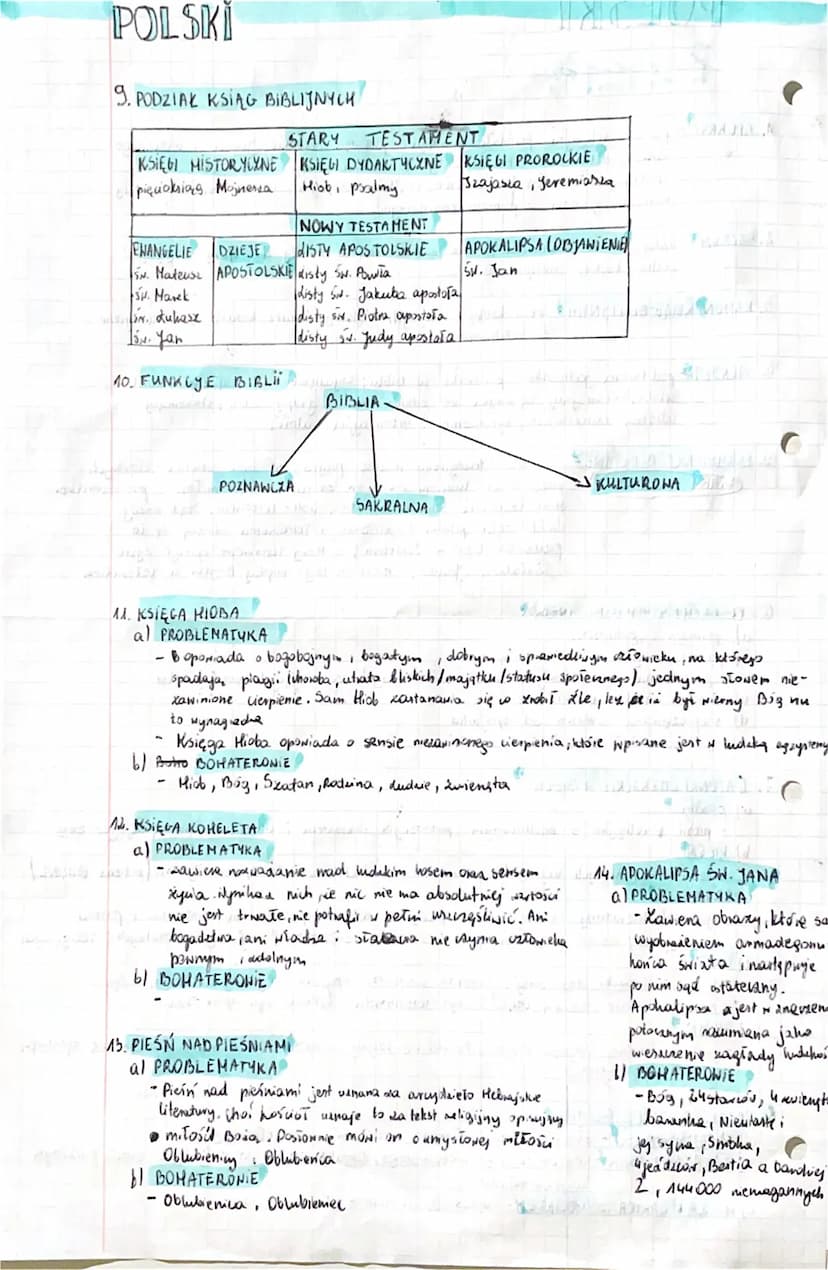 POLSKI
9. PODZIAŁ KSIĄG BIBLIJNYCH
STARY TESTAMENT
KSIĘGI HISTORYCZNE KSIĘGI DYDAKTYCZNE KSIĘGI PROROCKIE
pięcioksiąg Mojżesza Hiob, psalmy Izajasza, Jeremiasza
NOWY TESTAMENT
EWANGELIE DZIEJE LISTY APOSTOLSKIE APOKALIPSA (OBJAWIENIE)
św. Mateusz APOSTOLSKIE listy św. Pawła św. Jan
św. Marek listy św. Jakuba apostoła
św. Łukasz listy św. Piotra apostoła
św. Jan listy św. Judy apostoła
10. FUNKCJE BIBLII
BIBLIA
POZNAWCZA
SAKRALNA
KULTUROWA
11. KSIĘGA HIOBA
a) PROBLEMATYKA
- opowiada o bogobojnym, bogatym, dobrym i sprawiedliwym człowieku, na którego
spadają plagi (choroba, utrata bliskich/majątku/statusu społecznego) jednym słowem nie-
zawinione cierpienie. Sam Hiob zastanawia się co zrobił źle, lecz był wierny Bóg mu
to wynagradza
- Księga Hioba opowiada o sensie niezawinionego cierpienia, które wpisane jest w ludzką
b) BOHATEROWIE
- Hiob, Bóg, Szatan, Rodzina, Ludzie, zwierzęta
12. KSIĘGA KOHELETA
a) PROBLEMATYKA
- zawiera rozważanie nad ludzkim losem oraz sensem
życia. Wynika z nich, że nic nie ma absolutniej wartości
nie jest trwałe, nie potrafi w pełni uszczęśliwić. Ani
bogactwa, ani władza i nie czyma człowieka
pewnym i
b) BOHATEROWIE
-
13. PIEŚŃ NAD PIEŚNIAMI
a) PROBLEMATYKA
- Pieśń nad pieśniami jest uznana za arcydzieło Hebrajskie
literatury. Choć kościół uznaje to za tekst religijny opisujący
miłość Boża. Dosłownie mówi on o zmysłowej miłości
Oblubienicy i Oblubieńca
b) BOHATEROWIE
- Oblubienica, Oblubieniec
14. APOKALIPSA ŚW. JANA
a) PROBLEMATYKA
- Zawiera obrazy, które są
wyobrażeniem
końca świata i następuje
po nim sąd ostateczny.
Apokalipsa jest w
potocznym rozumiana jako
wieszczenie zagłady
b) BOHATEROWIE
- Bóg, 24 starców, 4
baranka, Niewiasta i
jej syna, Smoka,
4 jeźdźców, Bestia
2, 144000